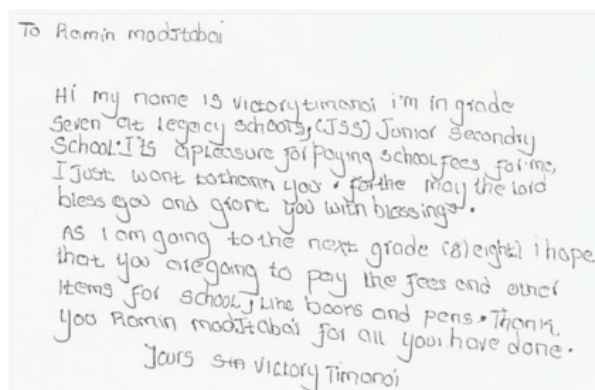 To Ramin modJtabai
Hi my name is victorytimanoi i'm in grade
Seven at Legacy schools, (JSS) Junior Secondry
School. It's apleasure for paying school fees for me,
I Just want tothank you. forthe may the lord
bless you and grant you with blessings.
As I am going to the next grade (8)eight) i hope
that you aregoing to pay the fees and other
items for school, like books and pens. Thank
you Ramin modJtabai for all you have done.
Yours victory Timanoi